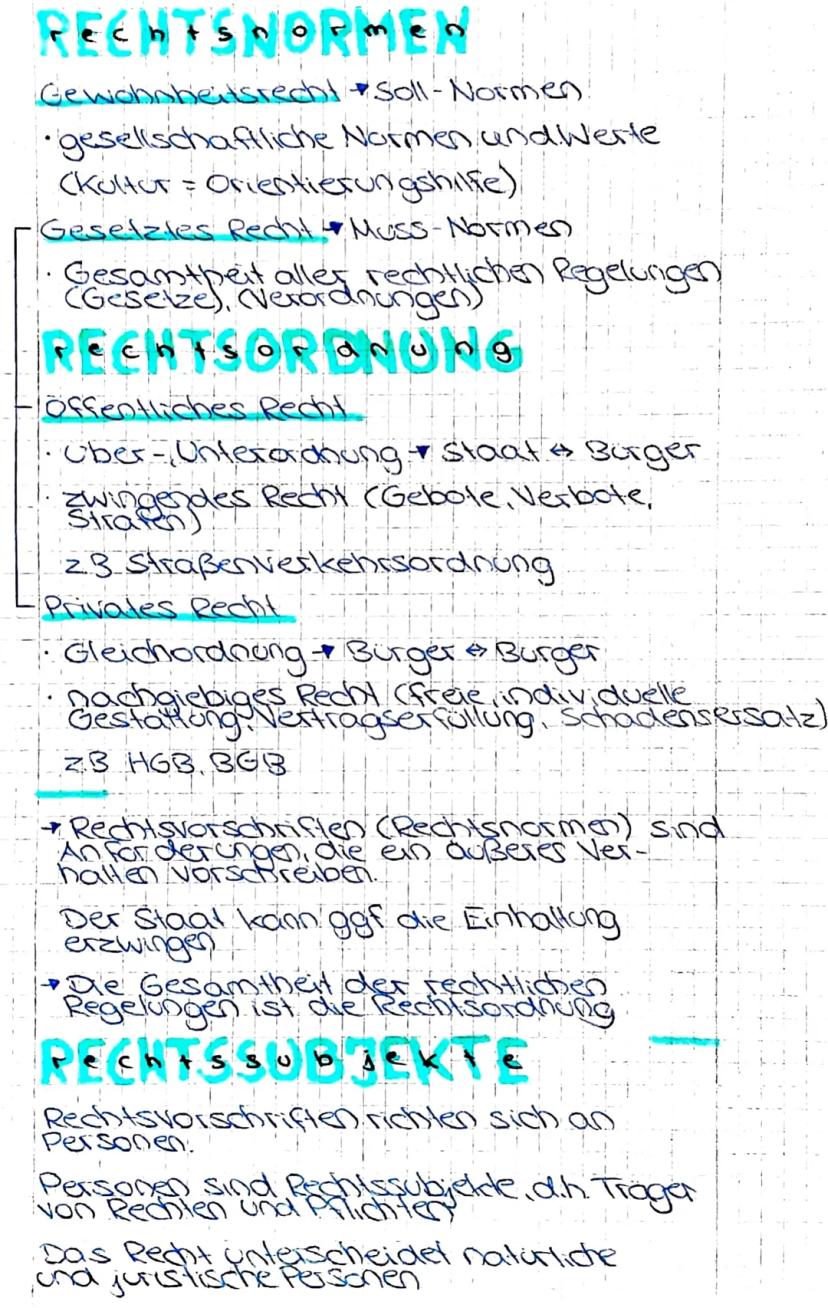 RECHTSNORMEN
Gewohnheitsrecht → Soll-Normen
· gesellschaftliche Normen und Werte
(Kultur = Orientierungshilfe)
Gesetztes Recht → Muss-Normen
· Gesamtheit aller rechtlichen Regelungen
(Gesetze), Verordnungen)
RECHTSORDNUNG
Öffentliches Recht
· Über-, Unterordnung → Staat ↔ Bürger
· zwingendes Recht (Gebote, Verbote,
Strafen)
z.B Straßenverkehrsordnung
Privates Recht
· Gleichordnung → Bürger ↔ Bürger
· nachgiebiges Recht (freie, individuelle
Gestaltung, Vertragserfüllung, Schadensersatz)
z.B HGB, BGB
→ Rechtsvorschriften (Rechtsnormen) sind
Anforderungen, die ein äußeres Ver-
halten vorschreiben.
Der Staat kann ggf die Einhaltung
erzwingen
→ Die Gesamtheit der rechtlichen
Regelungen ist die Rechtsordnung
RECHTSSUBJEKTE
Rechtsvorschriften richten sich an
Personen.
Personen sind Rechtssubjekte, d.h. Träger
von Rechten und Pflichten
Das Recht unterscheidet natürliche
und juristische Personen